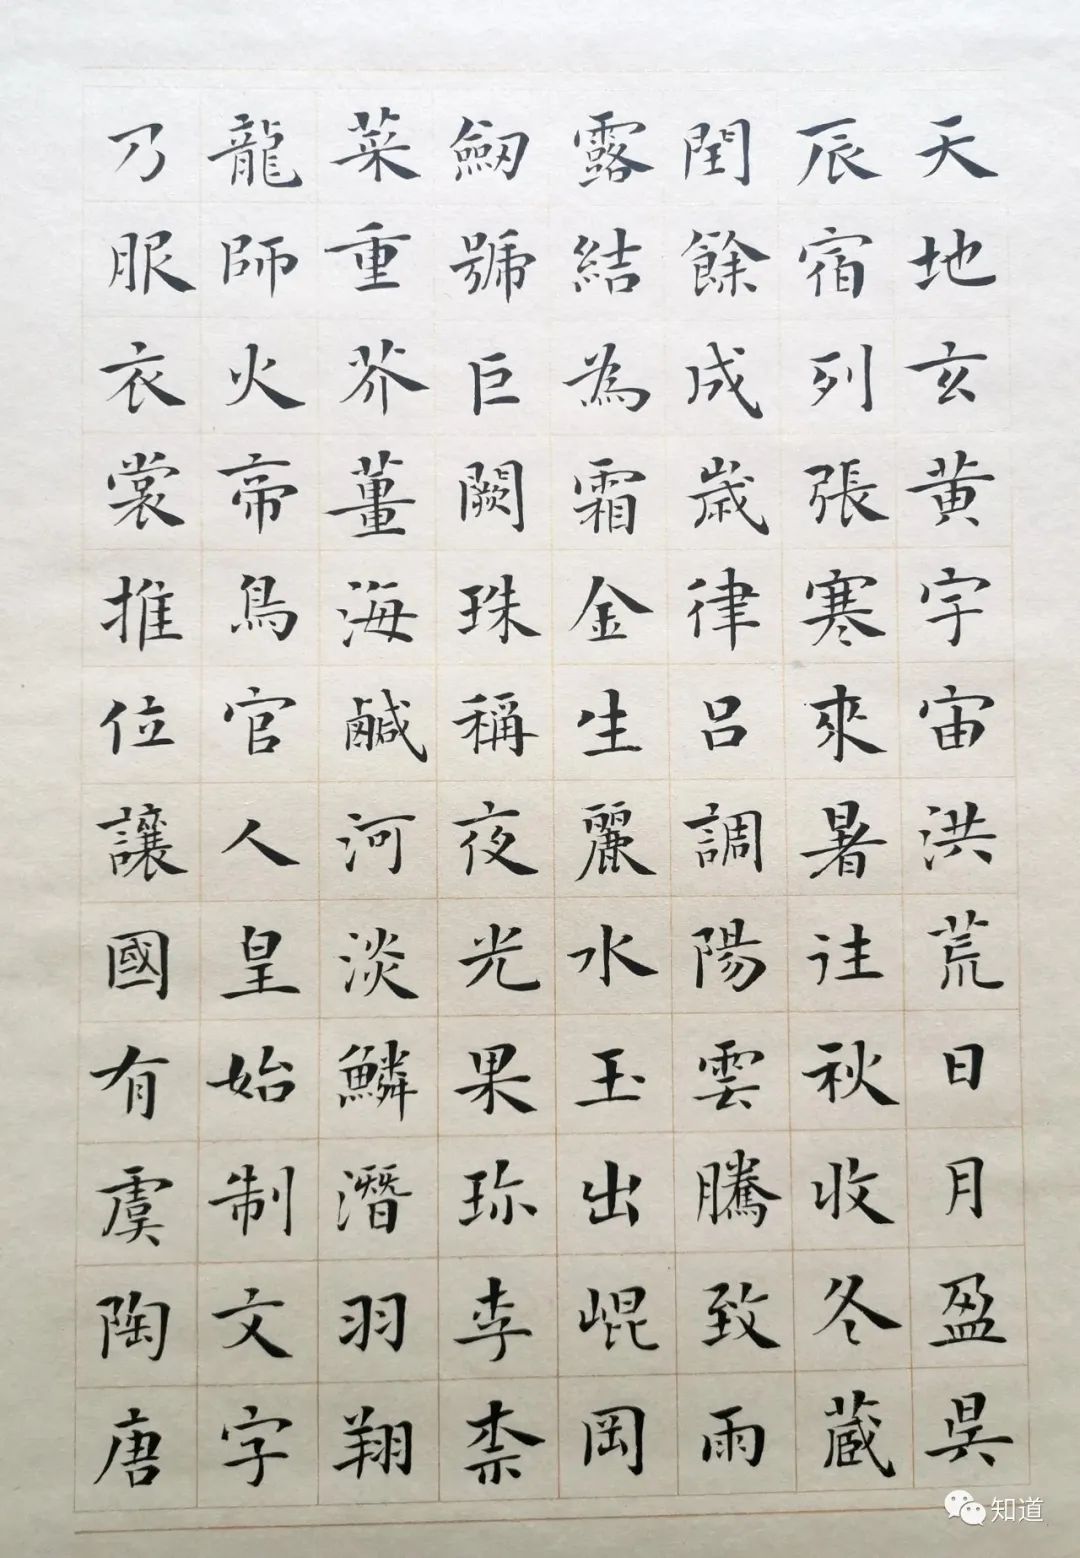 天地玄黄宇宙洪荒日月盈昃
辰宿列張寒來暑往秋收冬蔵
閏餘成歳律呂調陽雲騰致雨
露結為霜金生麗水玉出崐岡
劒號巨闕珠稱夜光果珎李柰
菜重芥薑海鹹河淡鱗潛羽翔
龍師火帝鳥官人皇始制文字
乃服衣裳推位讓國有虞陶唐
知道